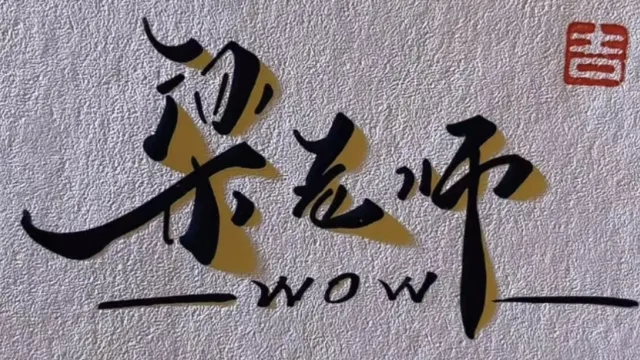 吉
梁老师
WOW